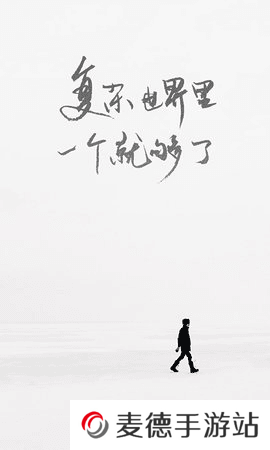 复杂世界里
一个就够了
麦德手游站